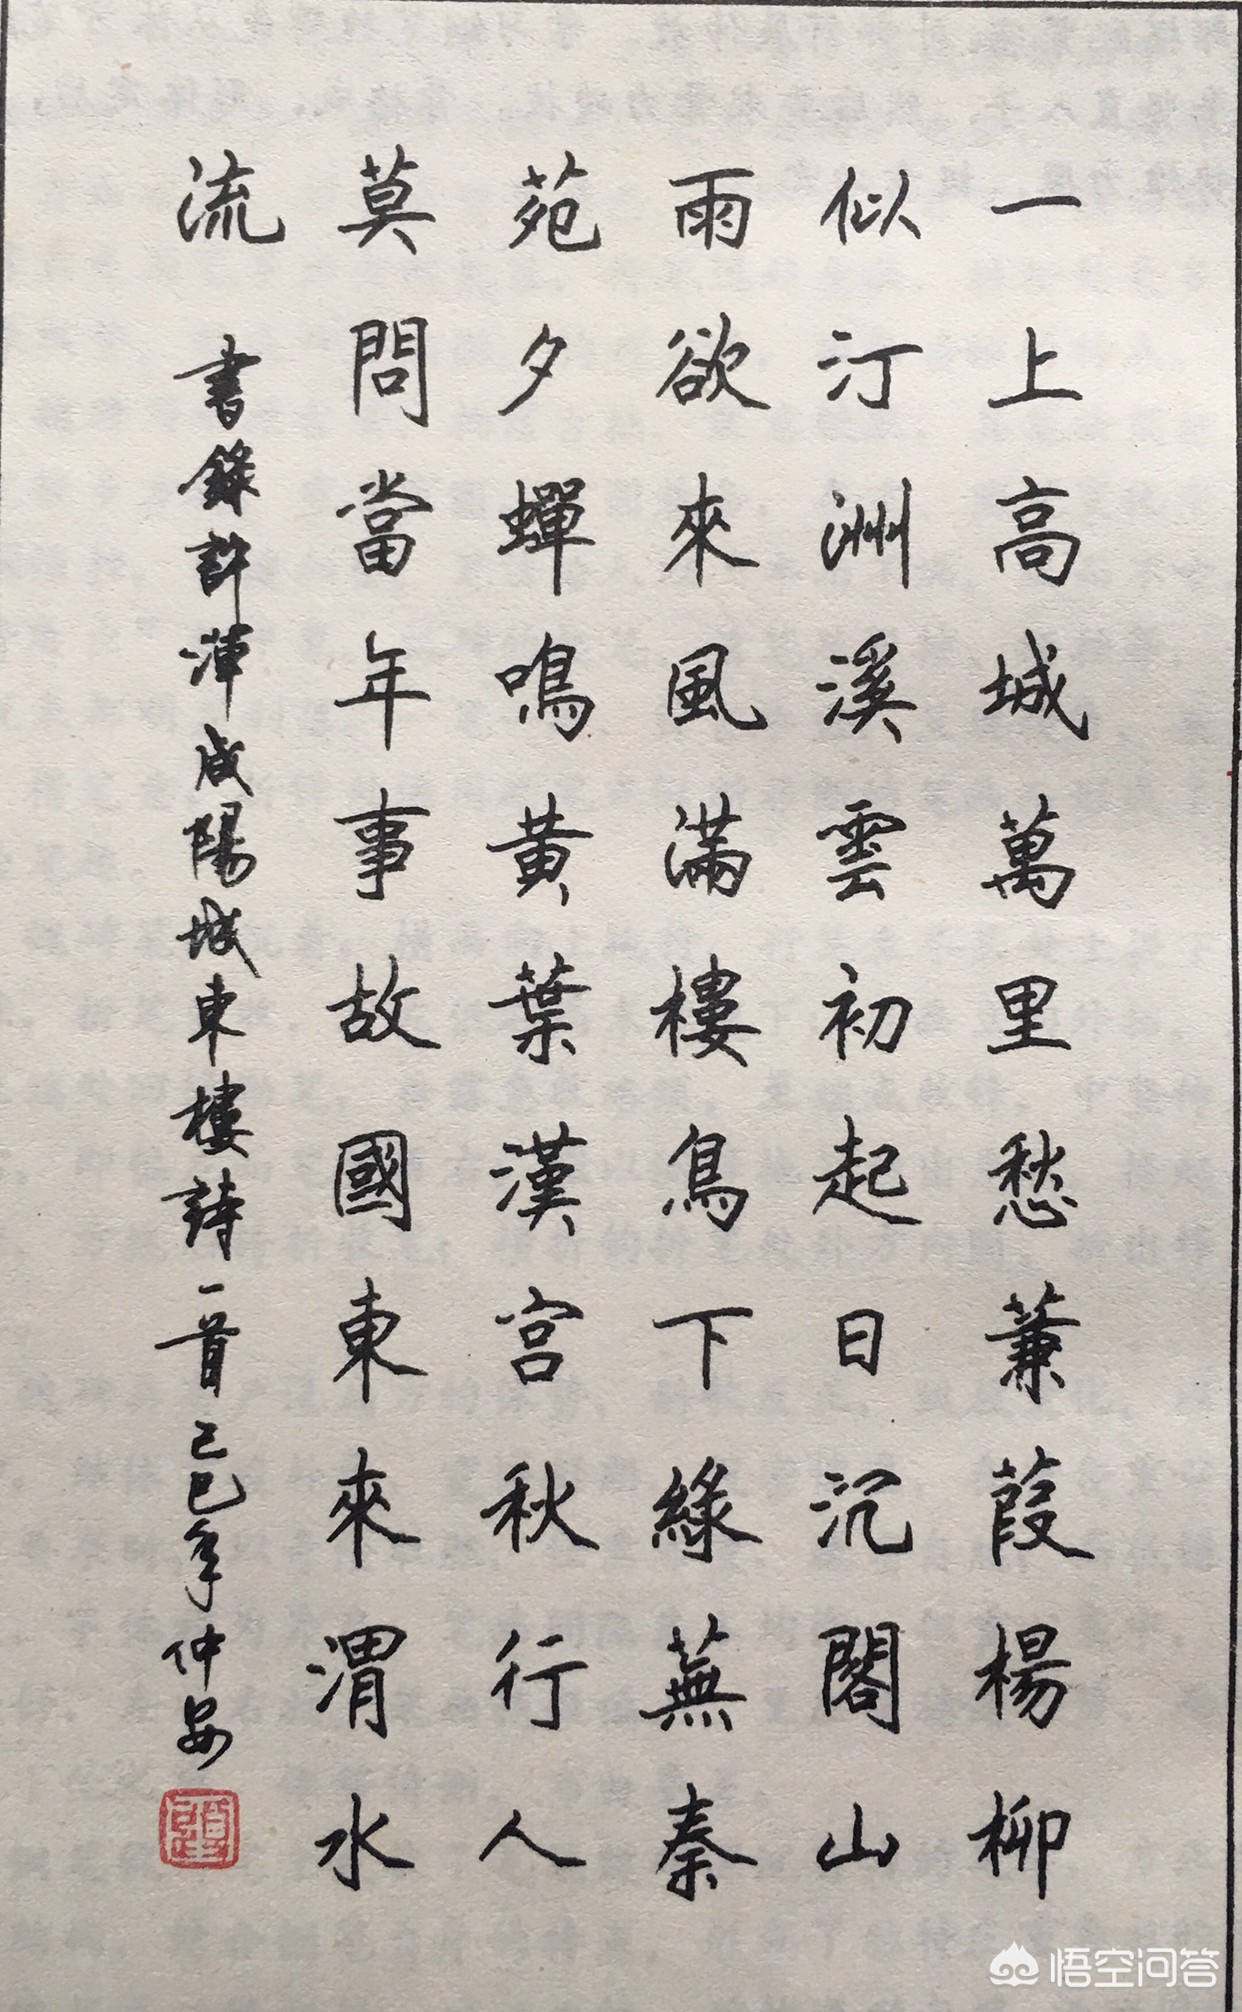 一上高城萬里愁蒹葭楊柳
似汀洲溪雲初起日沉閣山
雨欲來風滿樓鳥下綠蕪秦
苑夕蟬鳴黃葉漢宮秋行人
莫問當年事故國東來渭水
流
書錄許渾咸陽城東樓詩一首己巳年仲安
悟空问答